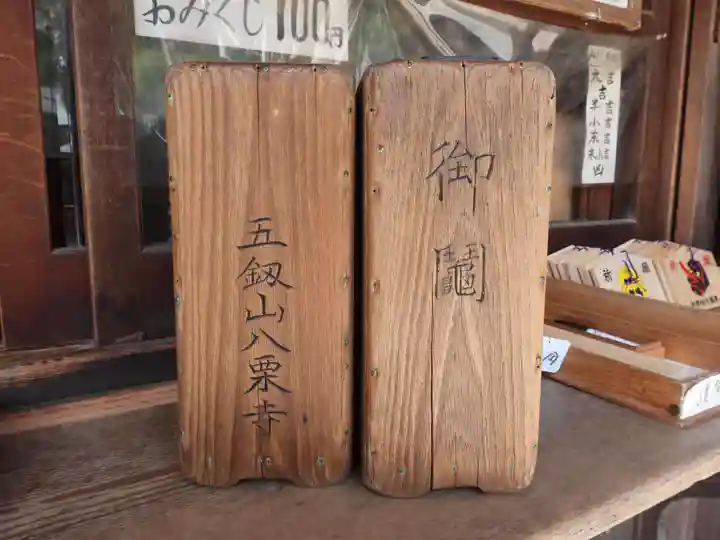 おみくじ100円
五剱山八栗寺
御鬮
大吉
吉
半吉
小吉
末吉
末小吉
凶